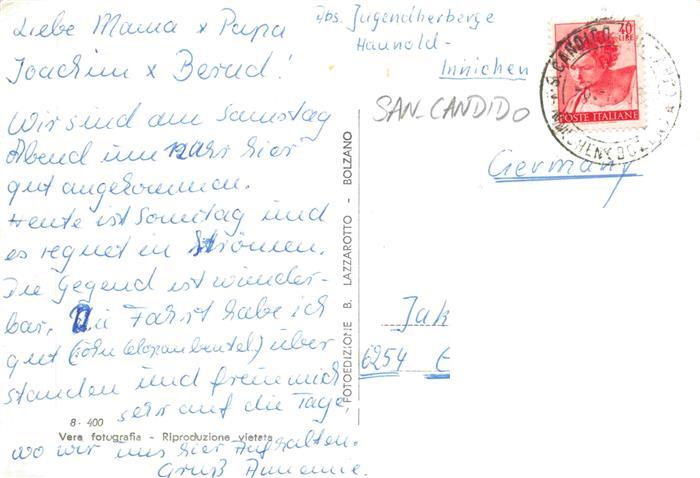 Liebe Mama + Papa
Joachim + Bernd!
Wir sind am Samstag
Abend um Uhr hier
gut angekommen.
Heute ist Sonntag und
es regnet in Strömen.
Die Gegend ist wunder-
bar. Die Fahrt habe ich
gut über
standen und freue mich
sehr auf die Tage,
wo wir uns hier Aufhalten.
Gruß Annemie.
8 - 400
Vera fotografia - Riproduzione vietata
FOTOEDIZIONE B. LAZZAROTTO - BOLZANO
Abs. Jugendherberge
Haunold-
Innichen
SAN CANDIDO
Germany
Jak
6254 E
40
LIRE
POSTE ITALIANE
S. CANDIDO